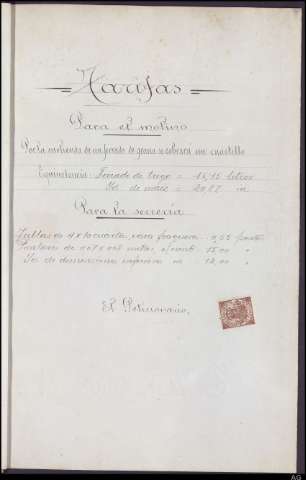 Tarifas
Para el molino
Por la molienda de un ferrado de grano se cobrará un cuartillo
Equivalencia: Ferrado de trigo = 16,15 litros
Id. de maiz = 20,87 id
Para la serrería
Tablas de 4 x 10 cuarta, para 0,55
de 0,07 x 0,07 metros, 15,00 "
Id. de dimensiones inferiores id = 12,00 "
El Peticionario,
AG